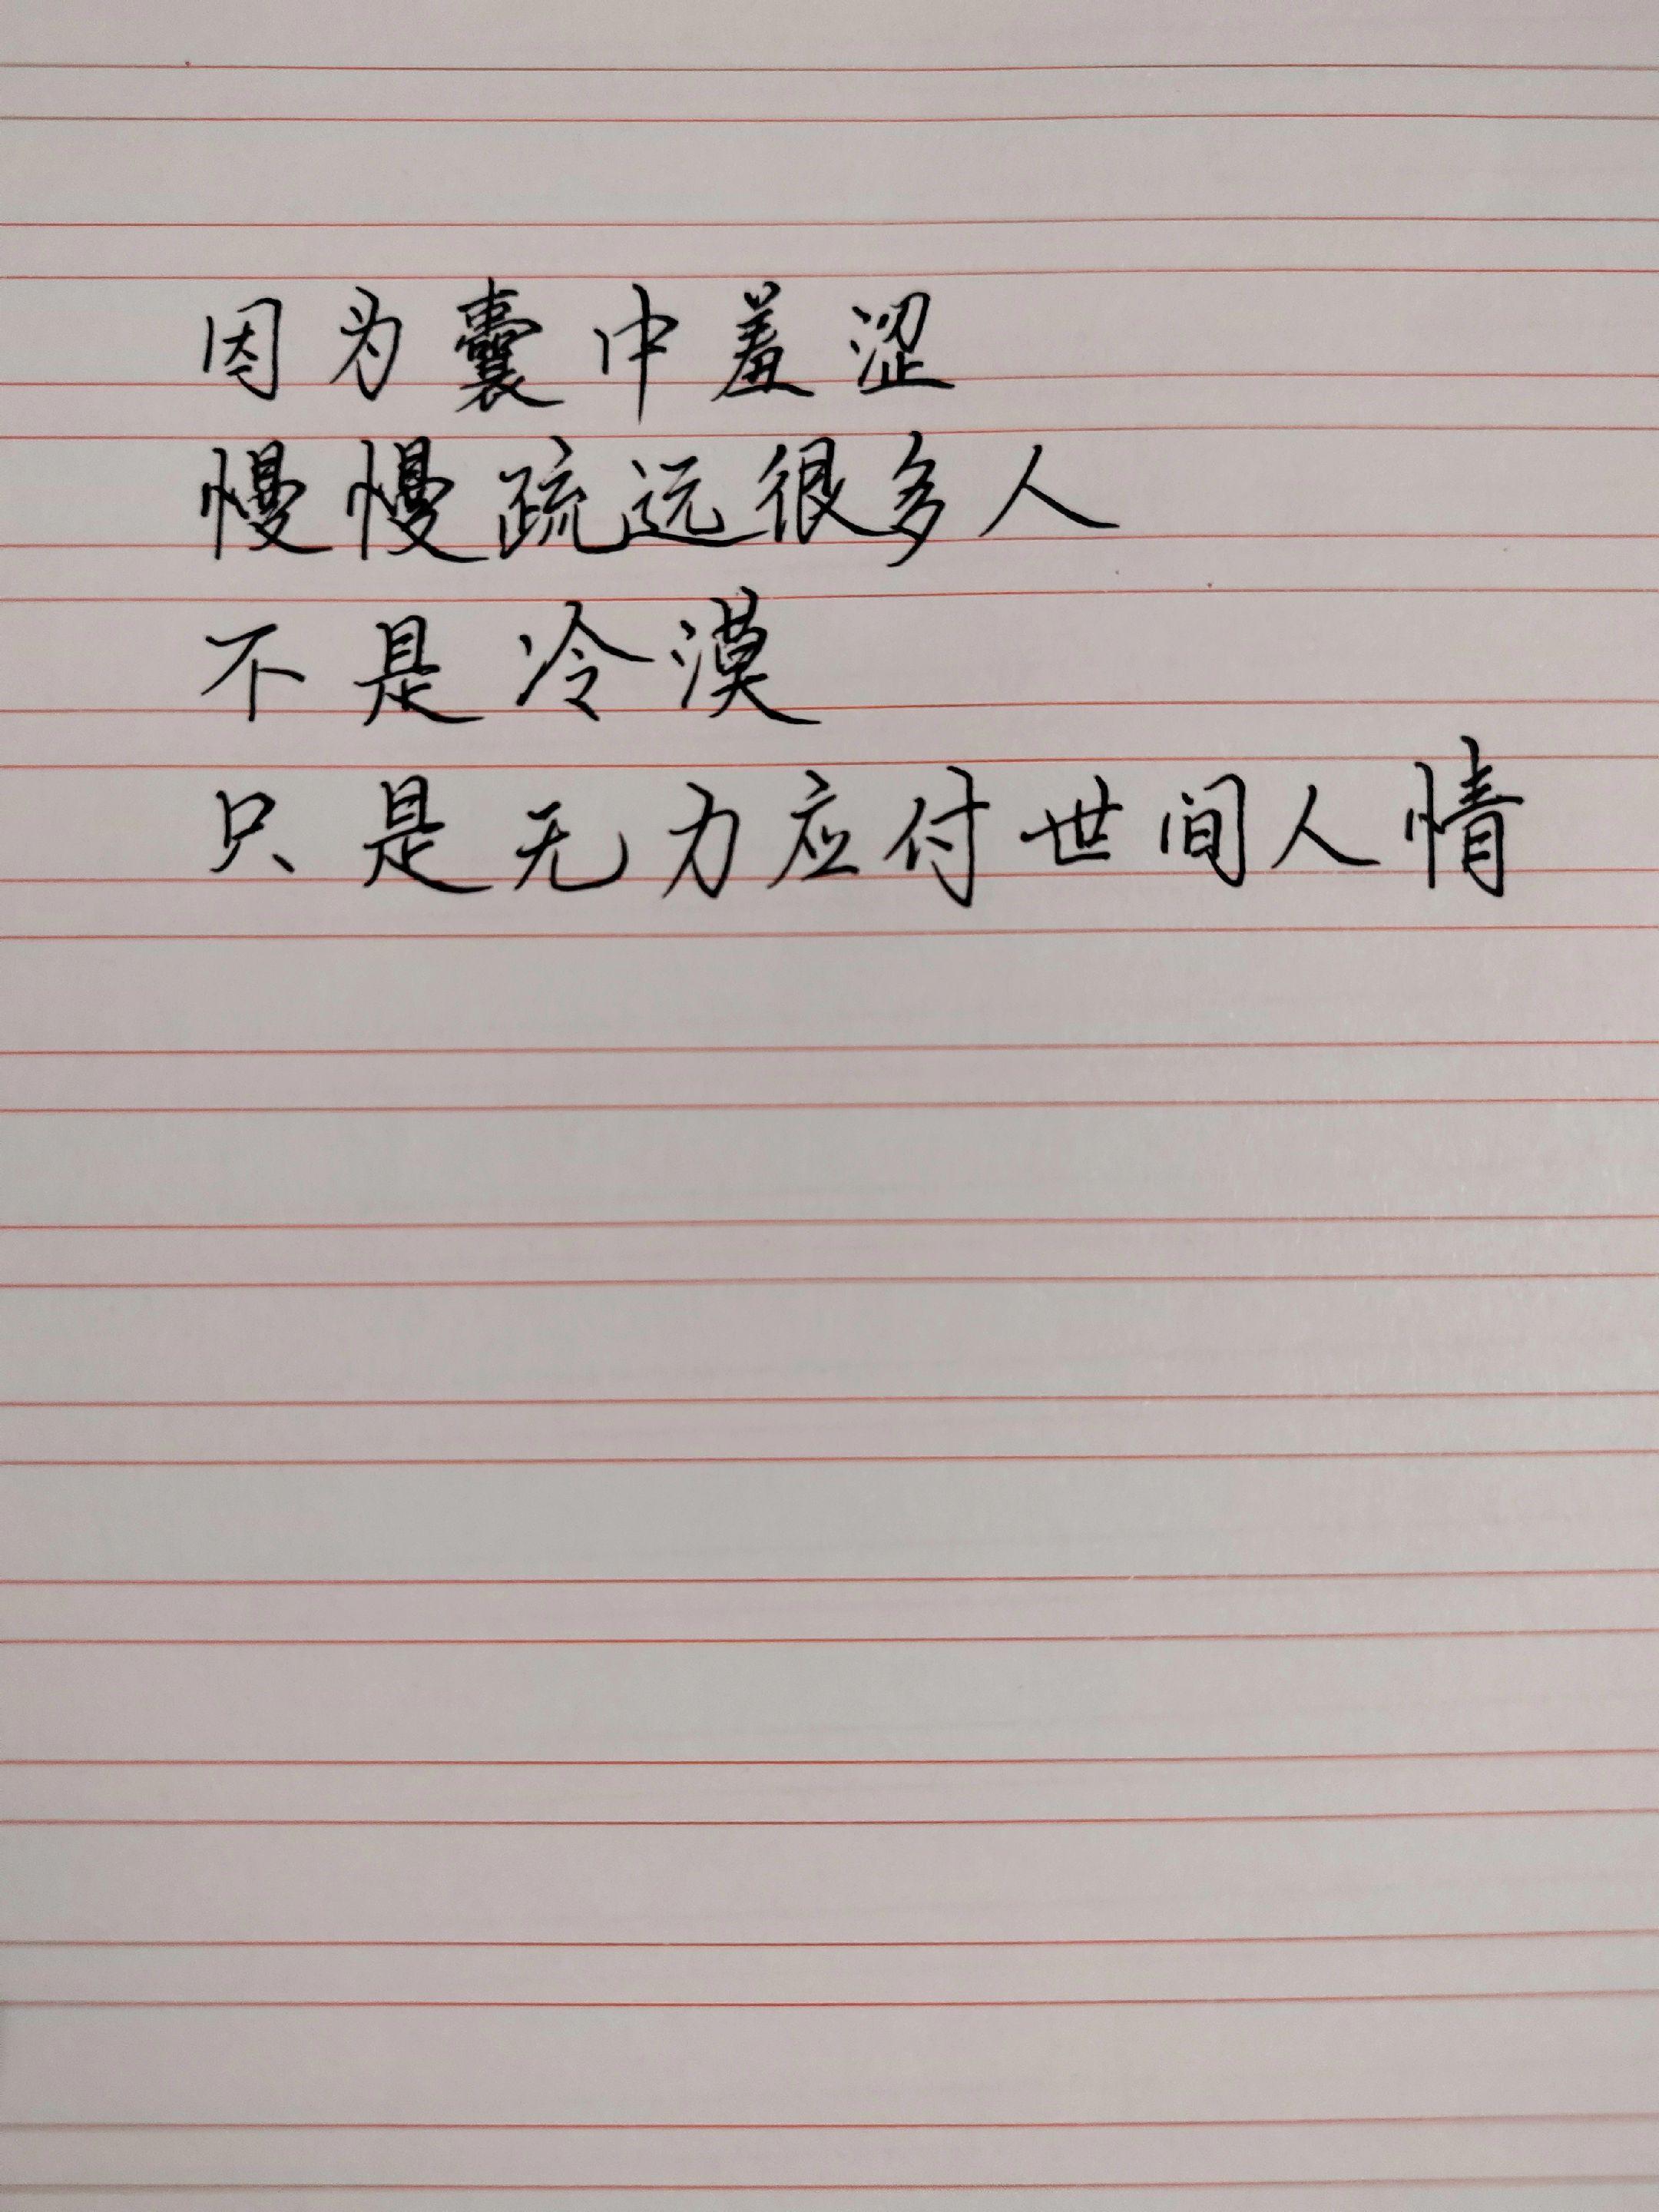 因为囊中羞涩
慢慢疏远很多人
不是冷漠
只是无力应付世间人情